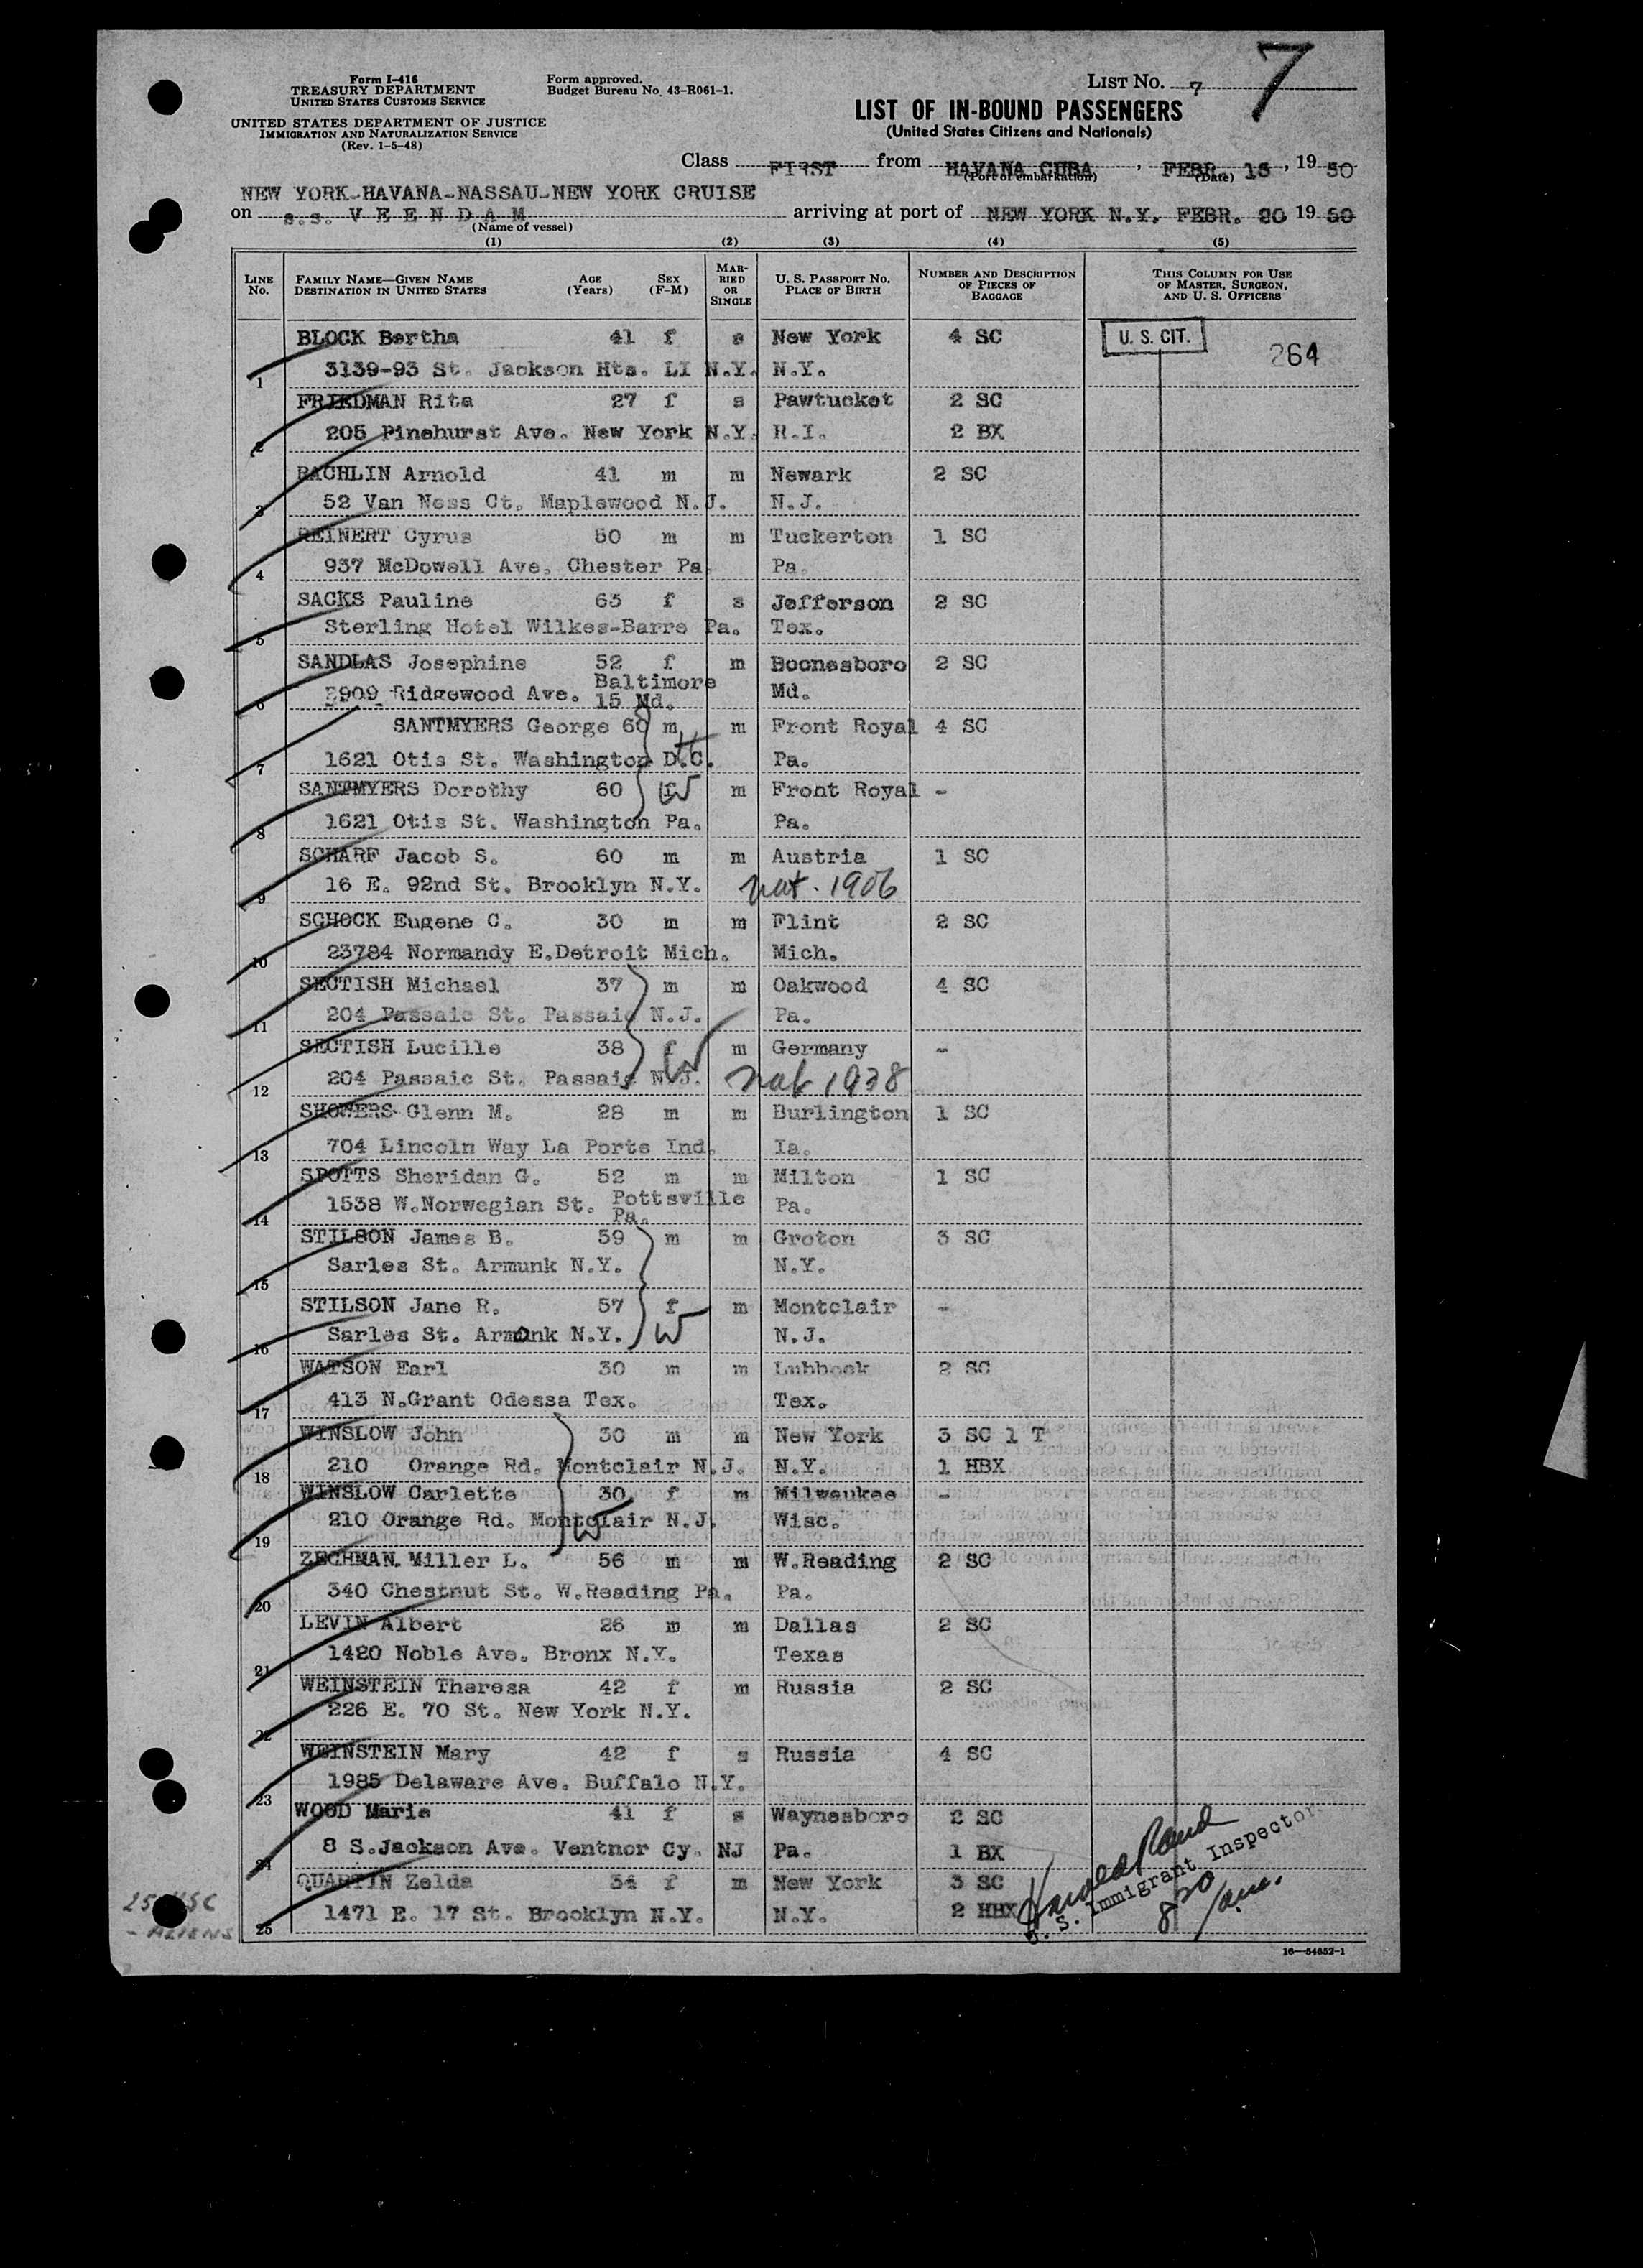 Form I-416
TREASURY DEPARTMENT
UNITED STATES CUSTOMS SERVICE
UNITED STATES DEPARTMENT OF JUSTICE
IMMIGRATION AND NATURALIZATION SERVICE
(Rev. 1-5-48)
Form approved.
Budget Bureau No. 43-R061-1.
LIST NO. 7
7
LIST OF IN-BOUND PASSENGERS
(United States Citizens and Nationals)
Class FIRST from HAVANA CUBA, FEBR. 15, 19 50
(Port of embarkation) (Date)
NEW YORK-HAVANA-NASSAU-NEW YORK CRUISE
on s.s. V E E N D A M arriving at port of NEW YORK N.Y. FEBR. 20 19 50
(Name of vessel)
(1) (2) (3) (4) (5)
LINE NO. FAMILY NAME—GIVEN NAME DESTINATION IN UNITED STATES AGE (Years) SEX (F-M) MARRIED OR SINGLE U. S. PASSPORT NO. PLACE OF BIRTH NUMBER AND DESCRIPTION OF PIECES OF BAGGAGE THIS COLUMN FOR USE OF MASTER, SURGEON, AND U. S. OFFICERS
BLOCK Bertha 41 f s New York 4 SC U. S. CIT. 264
1 3139-93 St. Jackson Hts. LI N.Y. N.Y.
FRIEDMAN Rita 27 f s Pawtucket 2 SC
2 205 Pinehurst Ave. New York N.Y. R.I. 2 BX
RACHLIN Arnold 41 m m Newark 2 SC
3 52 Van Ness Ct. Maplewood N.J. N.J.
REINERT Cyrus 50 m m Tuckerton 1 SC
4 937 McDowell Ave. Chester Pa. Pa.
SACKS Pauline 63 f s Jefferson 2 SC
5 Sterling Hotel Wilkes-Barre Pa. Tex.
SANDLAS Josephine 52 f m Boonesboro 2 SC
6 3909 Ridgewood Ave. Baltimore 15 Md. Md.
SANTMYERS George 60 m m Front Royal 4 SC
H
7 1621 Otis St. Washington D.C. Pa.
SANTMYERS Dorothy 60 f W m Front Royal -
8 1621 Otis St. Washington Pa. Pa.
SCHARF Jacob S. 60 m m Austria 1 SC
9 16 E. 92nd St. Brooklyn N.Y. nat. 1906
SCHOCK Eugene C. 30 m m Flint 2 SC
10 23784 Normandy E.Detroit Mich. Mich.
SECTISH Michael 37 m m Oakwood 4 SC
11 204 Passaic St. Passaic N.J. Pa.
SECTISH Lucille 38 f W m Germany -
12 204 Passaic St. Passaic N.J. nat 1938
SHOWERS Glenn M. 28 m m Burlington 1 SC
13 704 Lincoln Way La Porte Ind. Ia.
SPOTTS Sheridan G. 52 m m Milton 1 SC
14 1538 W.Norwegian St. Pottsville Pa. Pa.
STILSON James B. 59 m m Groton 3 SC
15 Sarles St. Armunk N.Y. N.Y.
STILSON Jane R. 57 f W m Montclair -
16 Sarles St. Armonk N.Y. N.J.
WATSON Earl 30 m m Lubbock 2 SC
17 413 N.Grant Odessa Tex. Tex.
WINSLOW John 30 m m New York 3 SC 1 T
18 210 Orange Rd. Montclair N.J. N.Y. 1 HBX
WINSLOW Carlette 30 f m Milwaukee -
19 210 Orange Rd. Montclair N.J. W Wisc.
ZECHMAN Miller L. 56 m m W.Reading 2 SC
20 340 Chestnut St. W.Reading Pa. Pa.
LEVIN Albert 26 m m Dallas 2 SC
21 1420 Noble Ave. Bronx N.Y. Texas
WEINSTEIN Theresa 42 f m Russia 2 SC
22 226 E. 70 St. New York N.Y.
WEINSTEIN Mary 42 f s Russia 4 SC
23 1985 Delaware Ave. Buffalo N.Y.
WOOD Marie 41 f s Waynesboro 2 SC
24 8 S.Jackson Ave. Ventnor Cy. NJ Pa. 1 BX
QUARTIN Zelda 34 f m New York 3 SC
25 1471 E. 17 St. Brooklyn N.Y. N.Y. 2 HBX
Harold Rand
U. S. Immigrant Inspector
820 /am.
25 USC
- ALIENS
16—54652-1